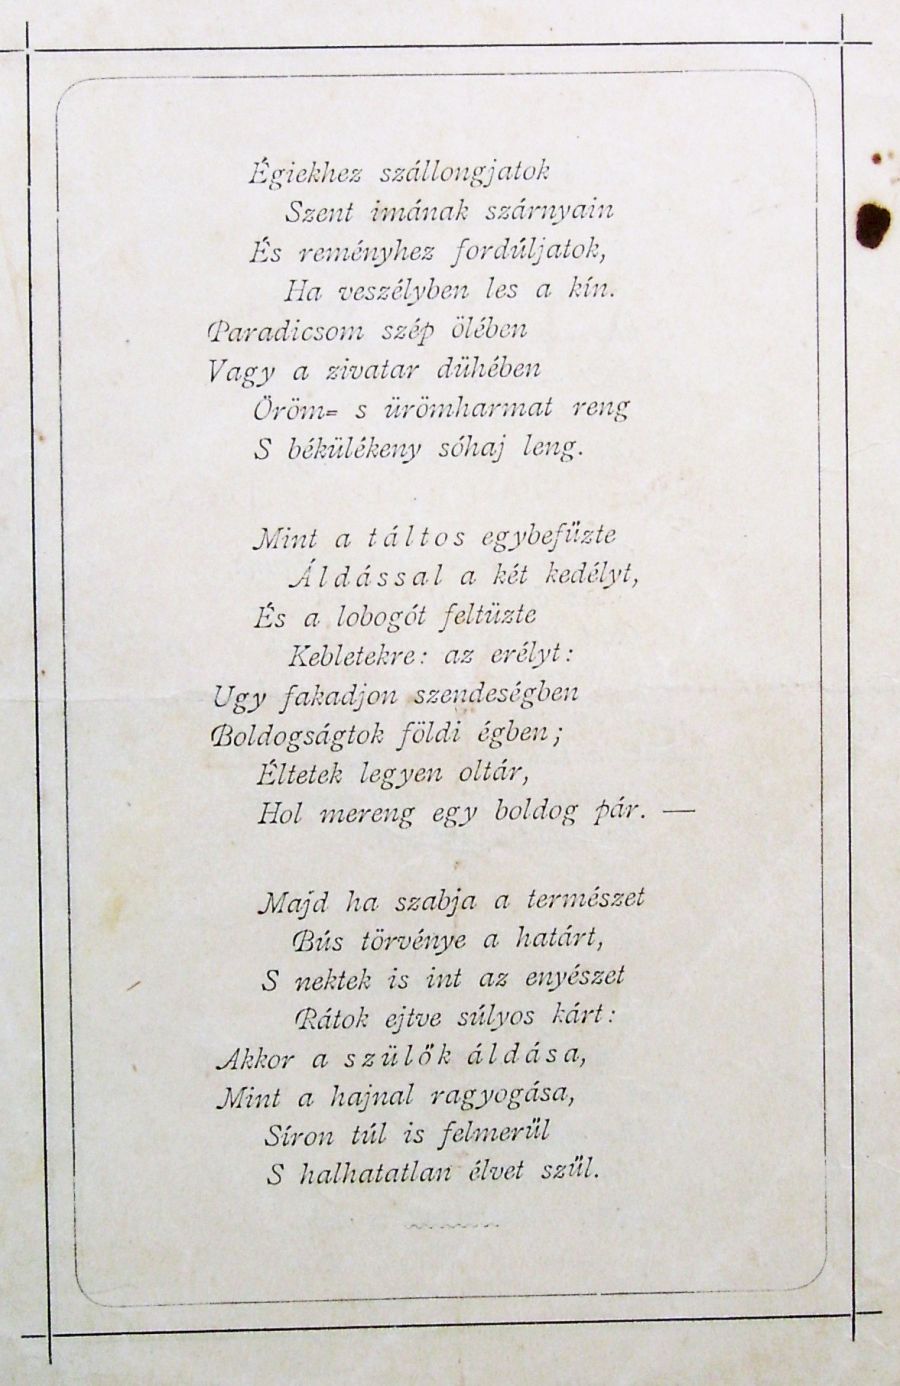 Égiekhez szállongjatok
Szent imának szárnyain
És reményhez fordúljatok,
Ha veszélyben les a kín.
Paradicsom szép ölében
Vagy a zivatar dühében
Öröm= s ürömharmat reng
S békülékeny sóhaj leng.
Mint a táltos egybefűzte
Áldással a két kedélyt,
És a lobogót feltüzte
Kebletekre: az erélyt:
Ugy fakadjon szendeségben
Boldogságtok földi égben;
Éltetek legyen oltár,
Hol mereng egy boldog pár. —
Majd ha szabja a természet
Bús törvénye a határt,
S nektek is int az enyészet
Rátok ejtve súlyos kárt:
Akkor a szülők áldása,
Mint a hajnal ragyogása,
Síron túl is felmerül
S halhatatlan élvet szűl.